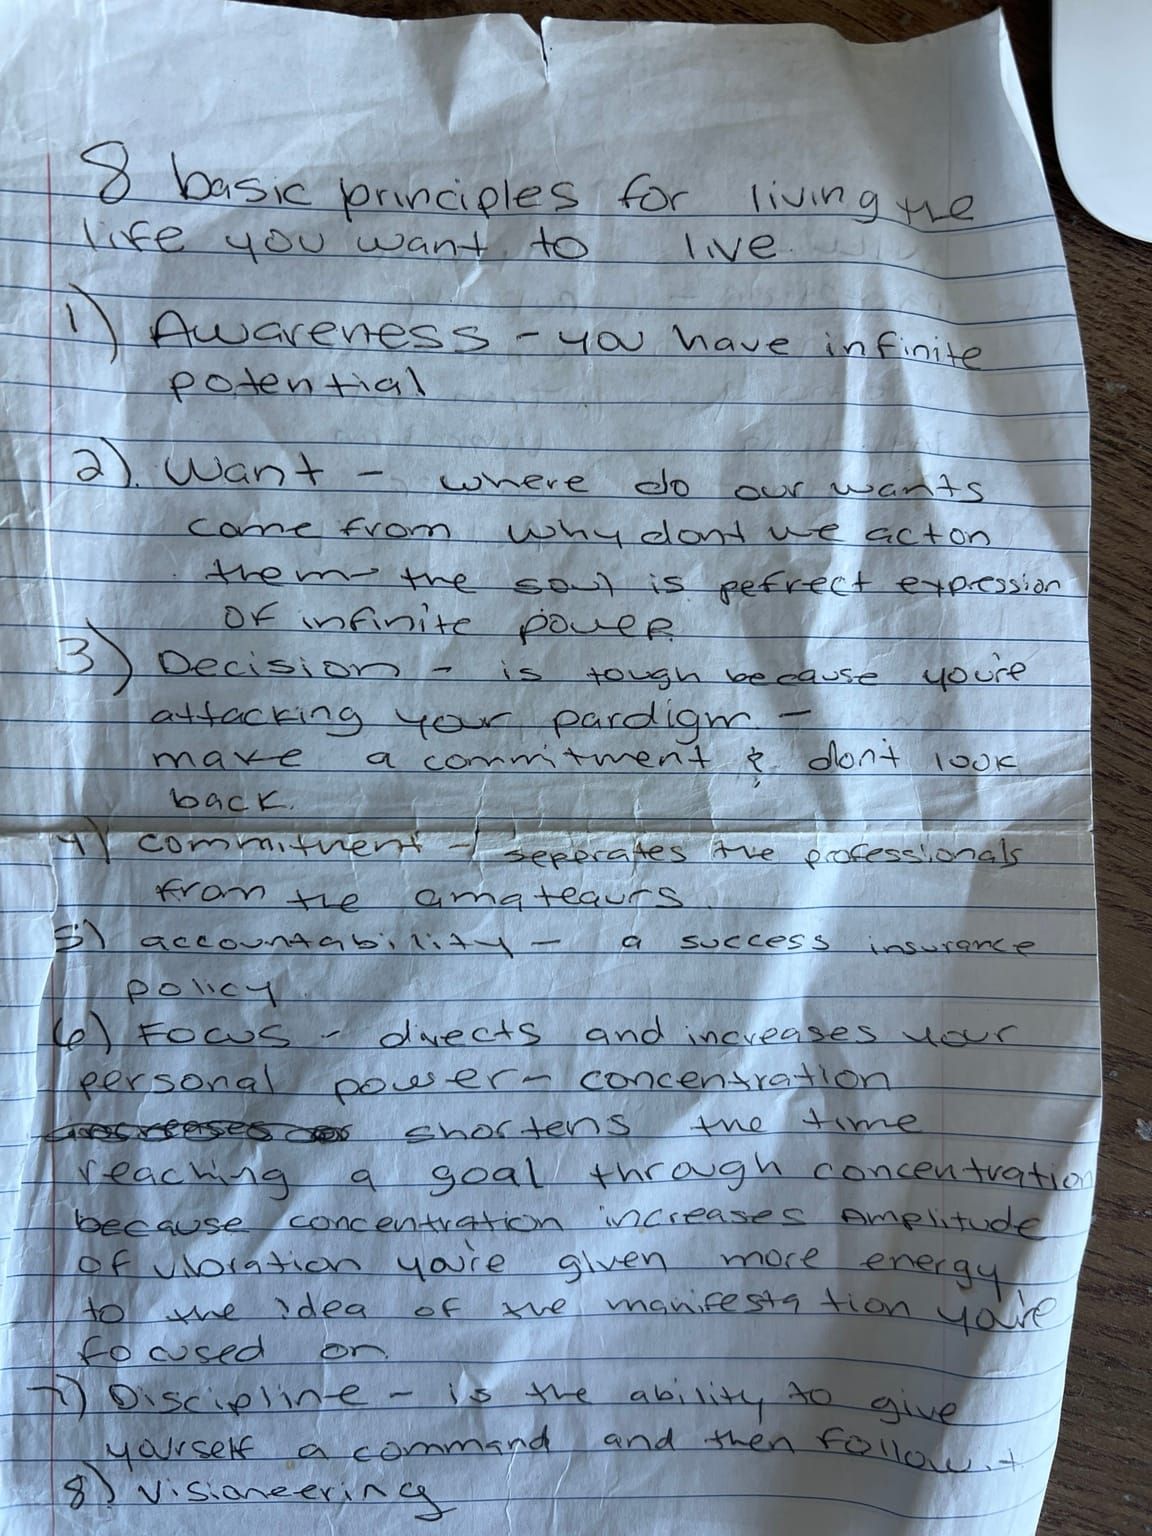 8 basic principles for living the
life you want to live
1) Awareness - you have infinite
potential
2). Want - where do our wants
come from why dont we act on
them - the soul is pefrect expression
of infinite power
3) Decision - is tough because you're
attacking your pardigm -
make a commitment & don't look
back.
4) commitment - seperates the professionals
from the amateaurs.
5) accountability - a success insurance
policy
6) Focus - directs and increases your
personal power - concentration
shortens the time
reaching a goal through concentration
because concentration increases Amplitude
of vibration you're given more energy
to the idea of the manifestation you're
focused on
7) Discipline - is the ability to give
yourself a command and then follow it
8) visioneering